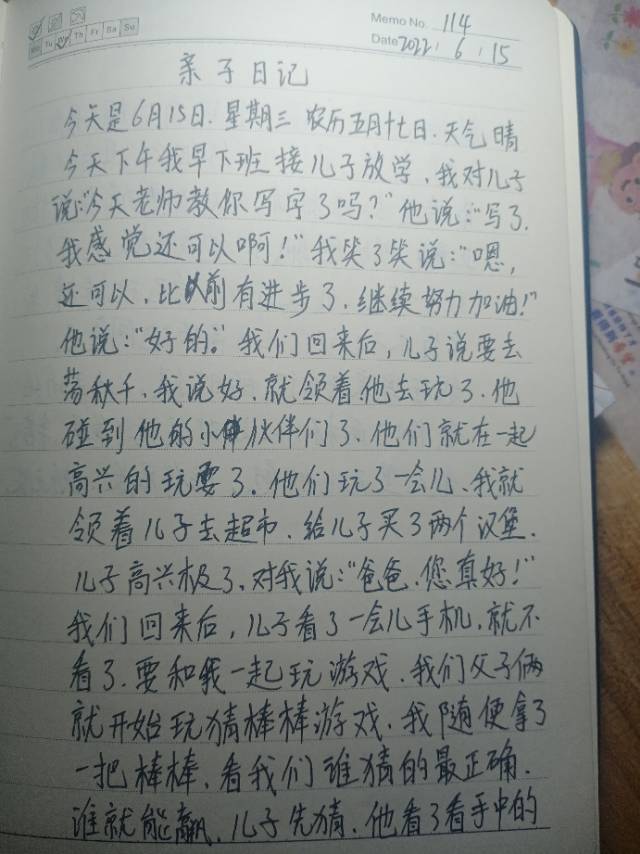 Memo No. 114
Mo Tu We Th Fr Sa Su
Date 2022 / 6 / 15
亲子日记
今天是6月15日.星期三 农历五月十七日.天气晴
今天下午我早下班接儿子放学,我对儿子
说:“今天老师教你写字了吗?”他说:“写了.
我感觉还可以啊!”我笑了笑说:“嗯,
还可以,比以前有进步了.继续努力加油!”
他说:“好的。”我们回来后,儿子说要去
荡秋千,我说好.就领着他去玩了.他
碰到他的小伙伴们了.他们就在一起
高兴的玩耍了.他们玩了一会儿、我就
领着儿子去超市.给儿子买了两个汉堡.
儿子高兴极了,对我说:“爸爸.您真好!”
我们回来后,儿子看了一会儿手机,就不
看了.要和我一起玩游戏.我们父子俩
就开始玩猜棒棒游戏.我随便拿了
一把棒棒,看我们谁猜的最正确.
谁就能赢.儿子先猜.他看了看手中的